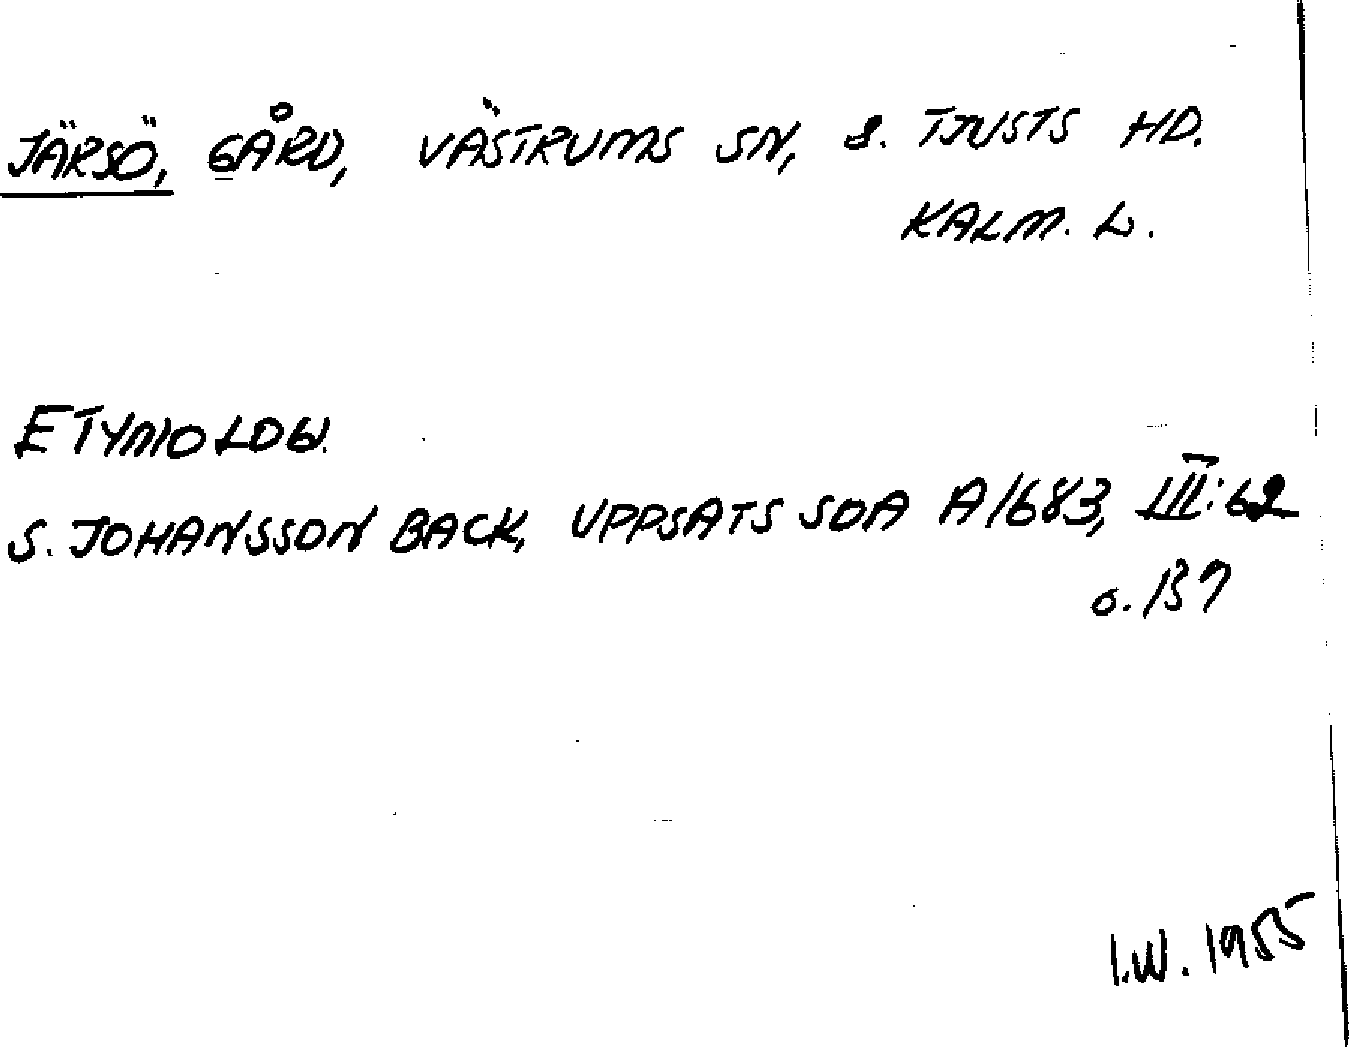 JÄRSÖ, GÅRD, VÄSTRUMS SN, S. TJUSTS HD.
KALM. L.
ETYMOLOGI.
S. JOHANSSON BACK, UPPSATS SOA A/683, III:62
o. 137
I.W. 1955